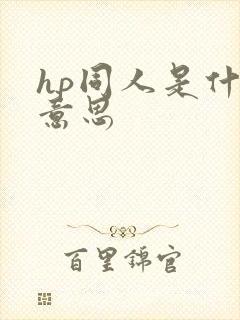 hp同人是什
意思
百里锦官